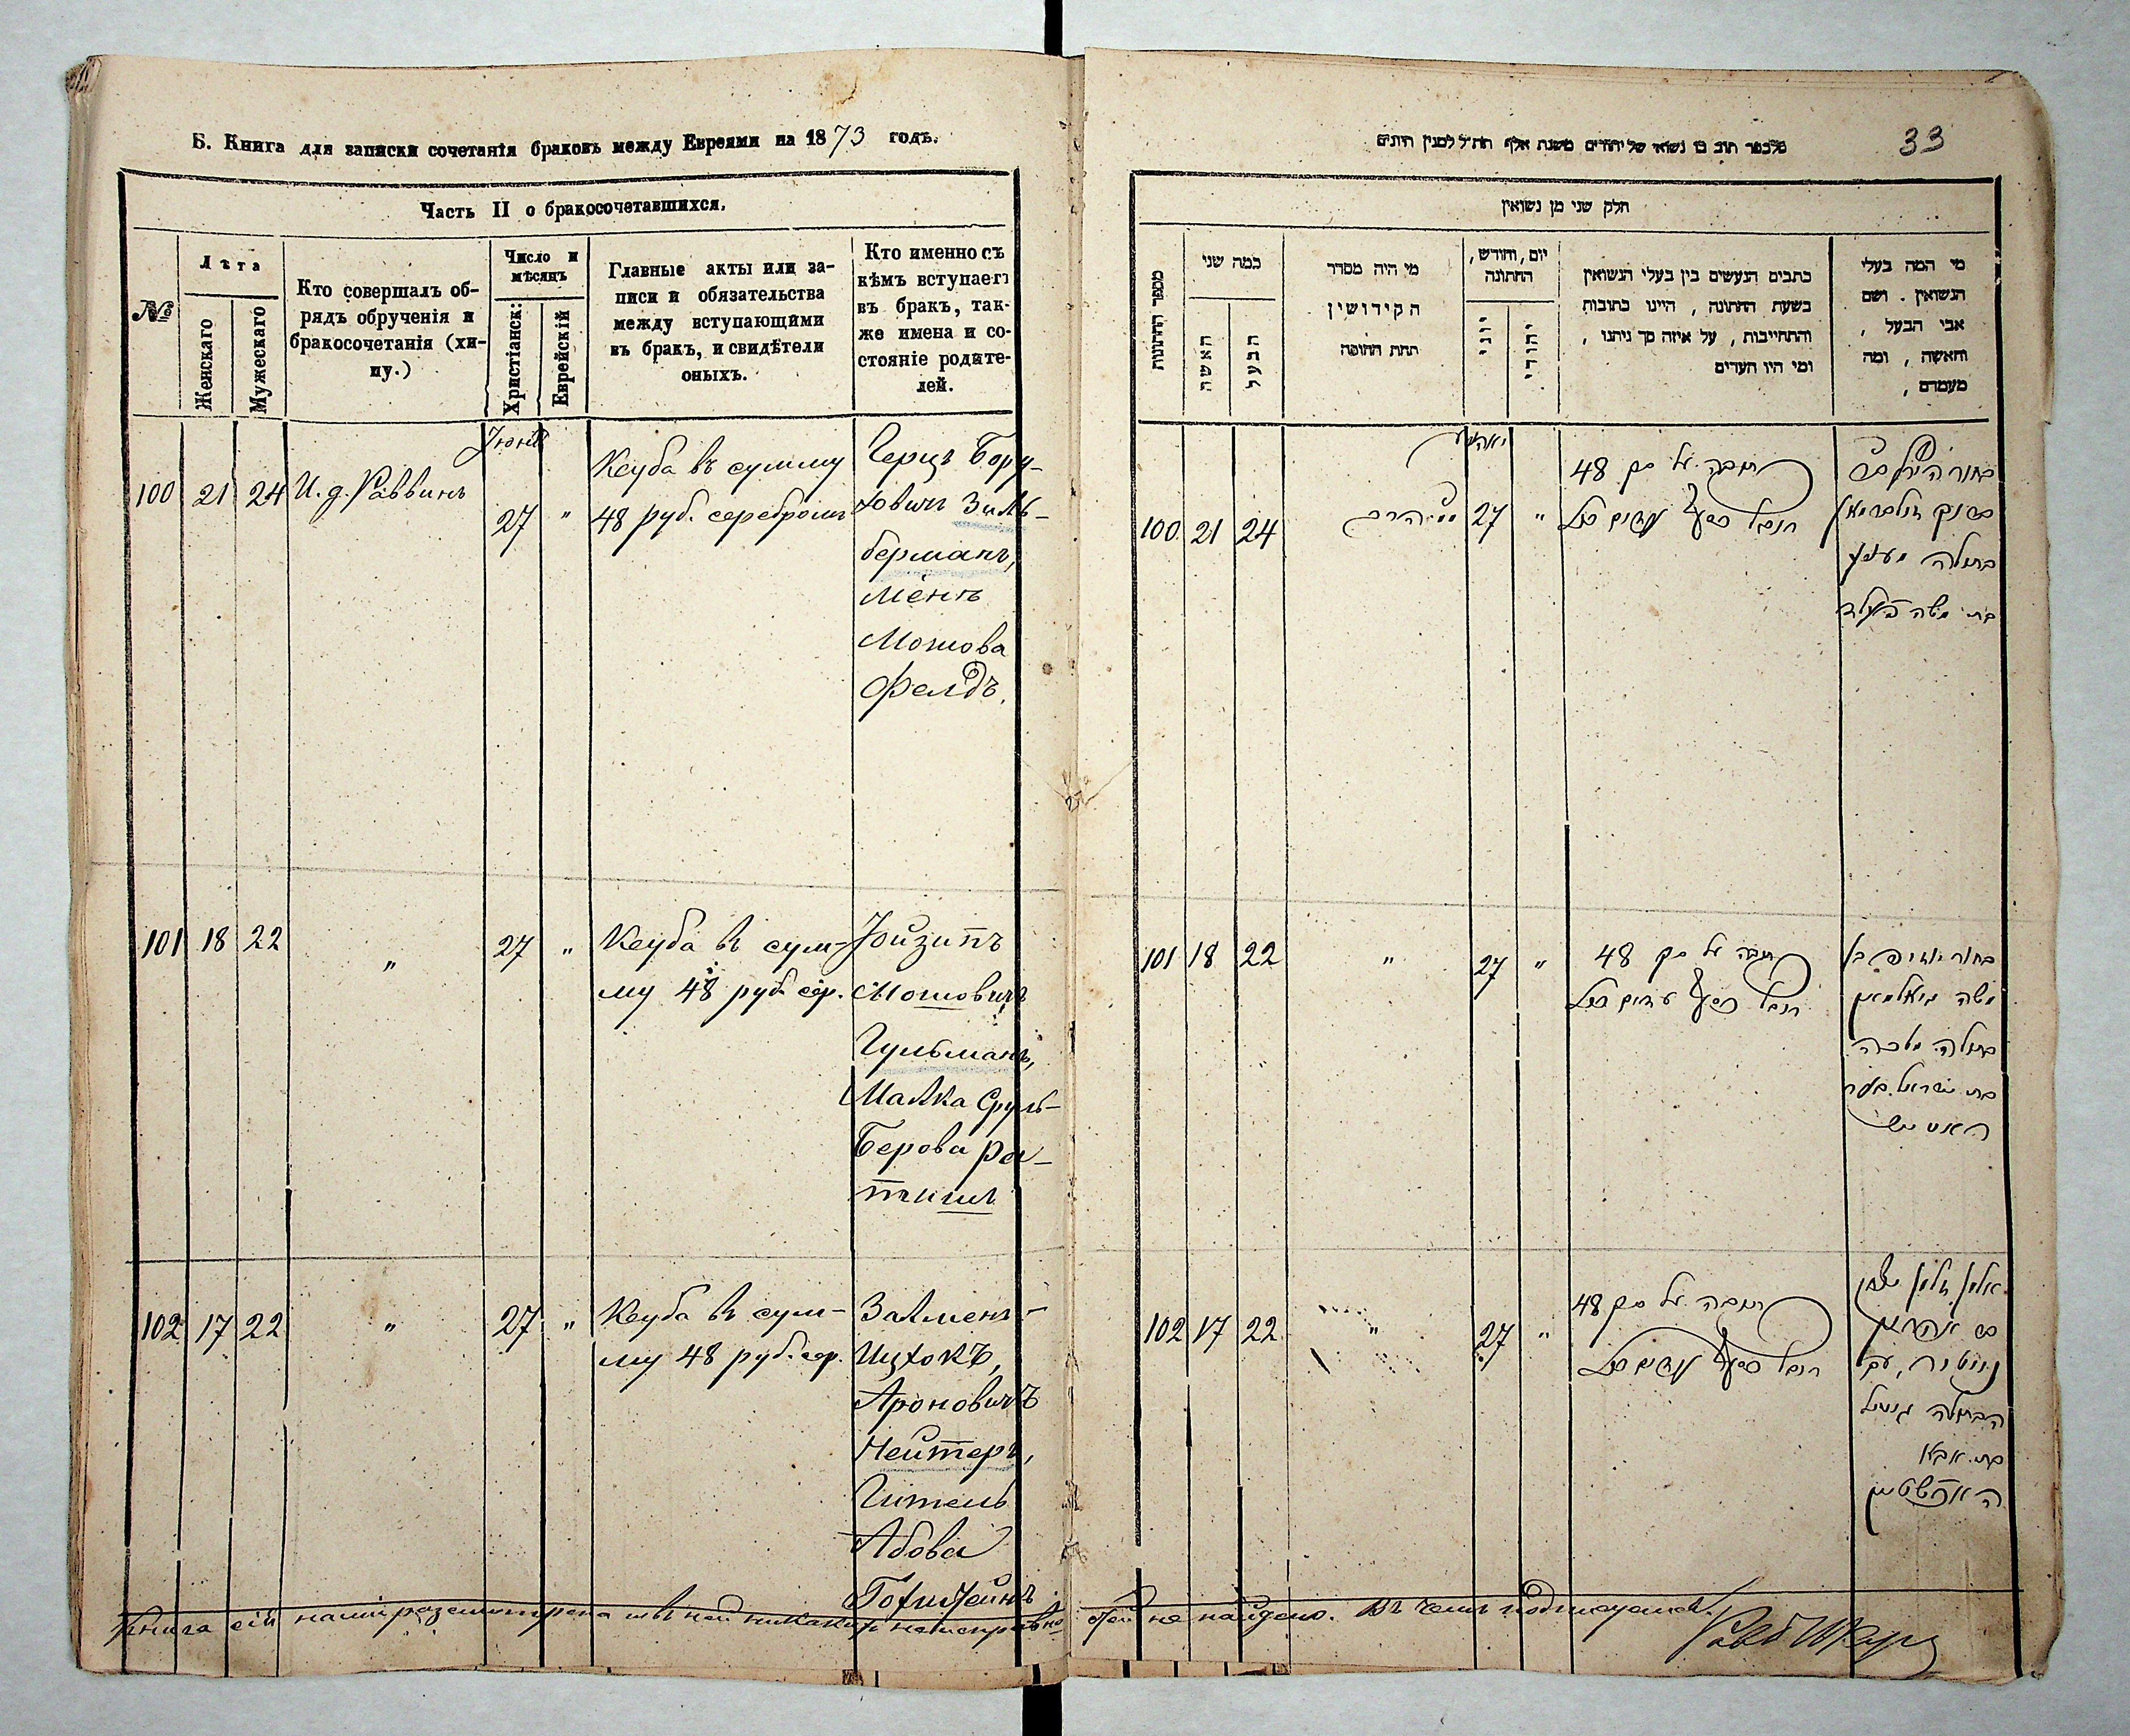 Б. Книга для записки сочетанія браковъ между Евреями на 1873 годъ.
Часть II о бракосочетавшихся.
№
Лѣта
Женскаго
Мужескаго
Кто совершалъ об-
рядъ обрученія и
бракосочетанія (хи-
пу.)
Число и
мѣсяцъ
Христіанск:
Еврейскій
Главные акты или за-
писи и обязательства
между вступающими
въ бракъ, и свидѣтели
оныхъ.
Кто именно съ
кѣмъ вступаетъ
въ бракъ, так-
же имена и со-
стояніе родите-
лей.
Іюнь
100 21 24 И. д. Раввинъ 27 "
Кеуба въ сумму
48 руб. серебромъ
Герцъ Бору-
ховичъ Зиль-
берманъ,
Мотова
Фелдъ.
101 18 22 " 27 "
Кеуба въ сум-
му 48 руб. сер.
Іойзипъ
Мотовичъ
Гульманъ,
Малка Сруль-
Берова Ра-
102 17 22 " 27 "
Кеуба въ сум-
му 48 руб. сер.
Залменъ-
Ицхокъ,
Ароновичъ
Нейтеръ,
Гитель
Абова
Гохштейнъ
Книга сія нами разсмотрена и въ ней никакихъ неисправно-
стей не найдено. Въ чемъ подписуемся.
33
חלק שני מן נשואין
מספר החתונות
כמה שני
האשה
הבעל
מי היה מסדר
הקידושין
תחת החופה
יום, וחודש,
החתונה
יוני
יהודי
כתבים הנעשים בין בעלי הנשואין
בשעת החתונה, היינו כתובות
והתחייבות, על איזה סך ניתנו,
ומי היו העדים
מי המה בעלי
הנשואין. ושם
אבי הבעל,
והאשה, ומה
מעמדם,
100 21 24 27 "
כתובה על סך 48
בתולה
בת משה פעלד
101 18 22 " 27 "
כתובה על סך 48
משה
בתולה מלכה
בת ישראל בער
102 17 22 " 27 "
כתובה על סך 48
הבתולה גיטל
בת אבא
האכשטיין